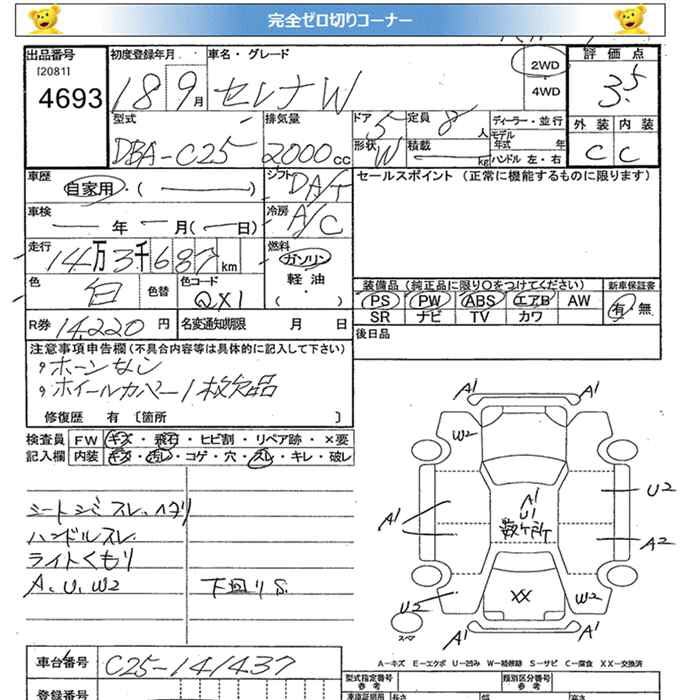 完全ゼロ切りコーナー
出品番号
[2081]
4693
初度登録年月
18 9月
車名・グレード
セレナW
2WD
4WD
評価点
3.5
型式
DBA-C25
排気量
2000cc
ドア 5
定員 8人
形状 W
積載 kg
ディーラー・並行
モデル年式 年
ハンドル 左・右
外装 内装
C C
車歴
自家用・( )
シフト
DA/T
セールスポイント (正常に機能するものに限ります)
車検
年 月( 日)
冷房
A/C
走行
14万3千687km
燃料
ガソリン
軽油
( )
色
白
色替
色コード
QX1
装備品 (純正品に限り○をつけてください)
新車保証書
PS PW ABS エアB AW
SR ナビ TV カワ
有・無
R券 14,220円
名変通知期限 月 日
後日品
注意事項申告欄 (不具合内容等は具体的に記入して下さい)
ホーンなし
ホイールカバー1枚欠品
修復歴 有〔箇所 〕
検査員記入欄
FW キズ・飛石・ヒビ割・リペア跡・×要
内装 キズ・汚レ・コゲ・穴・スレ・キレ・破レ
シートシミスレ、ヘタリ
ハンドルスレ
ライトくもり
A、U、W2
下回りS
A1 A1
W2
A1
U1
数ヶ所
A1
U2
A2
XX
U2
W2
スペア
A1 A1
A－キズ E－エクボ U－凹み W－補修跡 S－サビ C－腐食 XX－交換済
車台番号
C25-141437
登録番号
型式指定番号
参考
類別区分番号
参考
車庫証明用
参考
長さ
幅
高さ